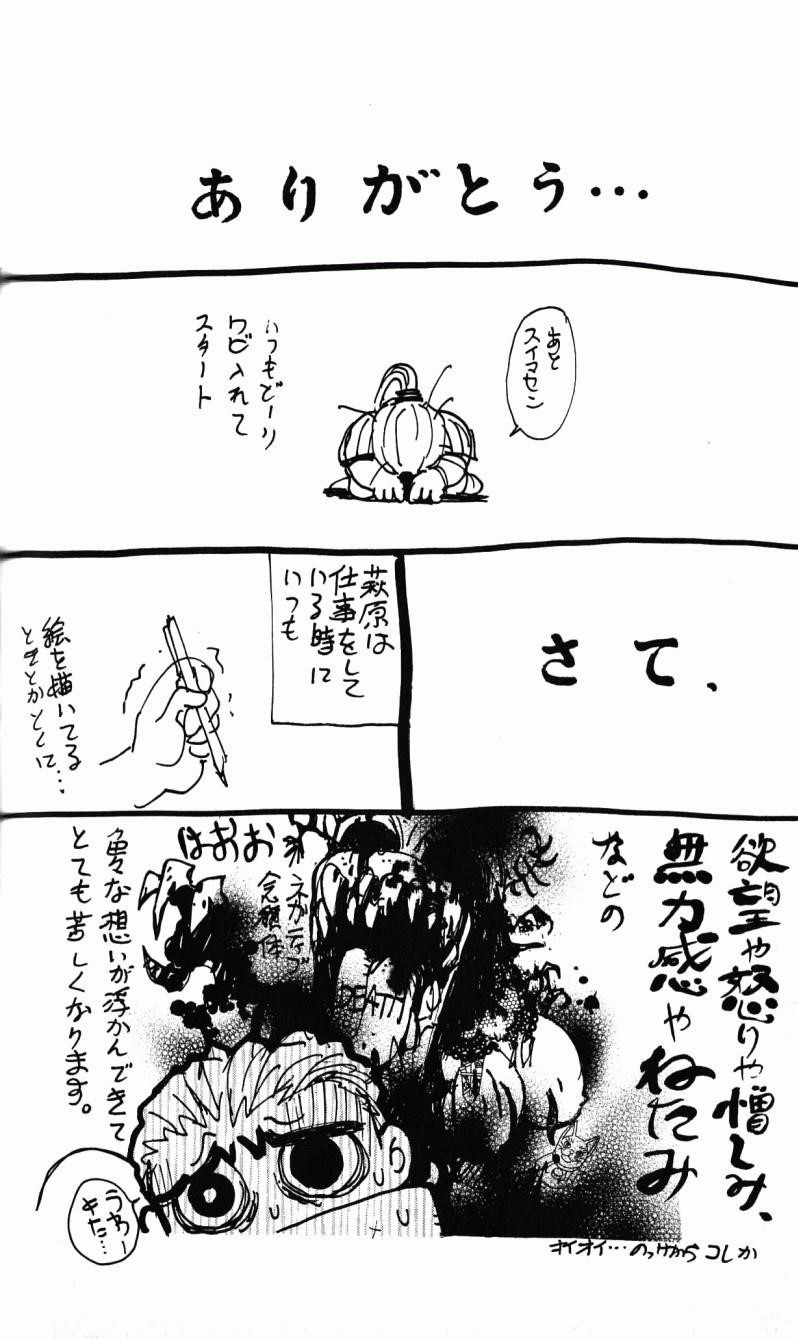 ありがとう…
あと
スイマセン
いつもどーり
ワビ入れて
スタート
さて、
萩原は
仕事をして
いる時に
いつも
絵を描いてる
ときとかとくに…
欲望や怒りや憎しみ、
無力感やねたみ
などの
おおおは
ネガティブ
念願体
DEATH
色々な想いが浮かんできて
とても苦しくなります。
うわー
きた…
オイオイ…のっけからコレか